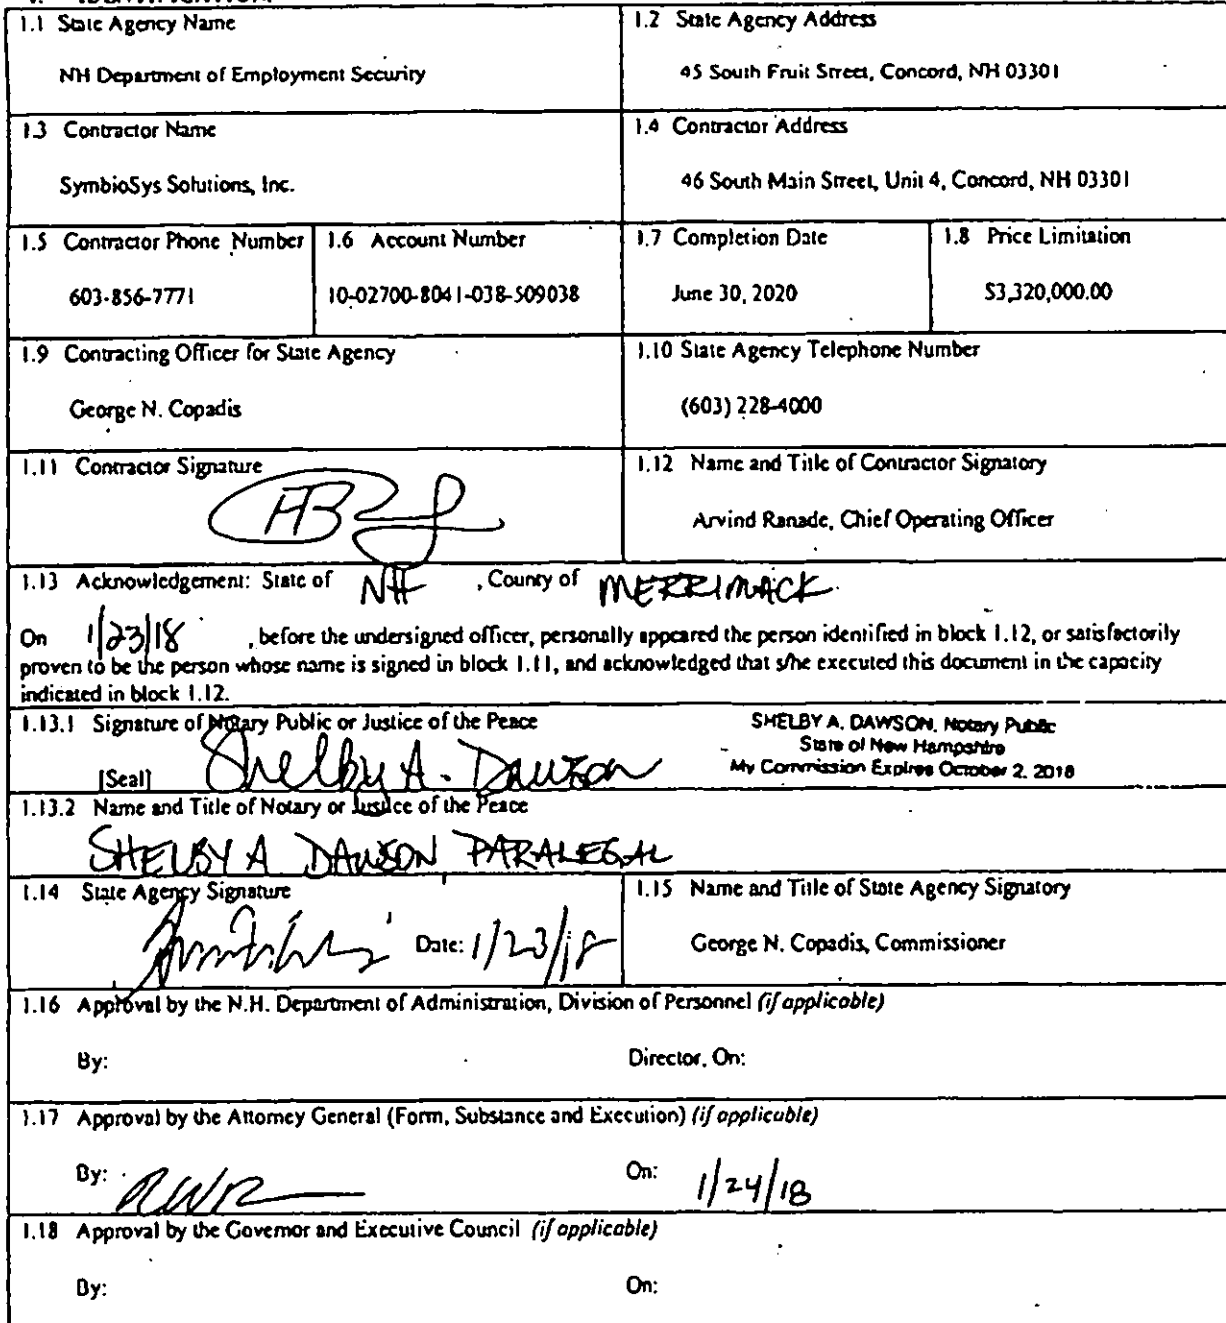 1.1 State Agency Name
NH Department of Employment Security
1.2 State Agency Address
45 South Fruit Street, Concord, NH 03301
1.3 Contractor Name
SymbioSys Solutions, Inc.
1.4 Contractor Address
46 South Main Street, Unit 4, Concord, NH 03301
1.5 Contractor Phone Number
603-856-7771
1.6 Account Number
10-02700-8041-038-509038
1.7 Completion Date
June 30, 2020
1.8 Price Limitation
$3,320,000.00
1.9 Contracting Officer for State Agency
George N. Copadis
1.10 State Agency Telephone Number
(603) 228-4000
1.11 Contractor Signature
1.12 Name and Title of Contractor Signatory
Arvind Ranade, Chief Operating Officer
1.13 Acknowledgement: State of NH , County of MERRIMACK
On 1/23/18 , before the undersigned officer, personally appeared the person identified in block 1.12, or satisfactorily
proven to be the person whose name is signed in block 1.11, and acknowledged that s/he executed this document in the capacity
indicated in block 1.12.
1.13.1 Signature of Notary Public or Justice of the Peace
SHELBY A. DAWSON, Notary Public
State of New Hampshire
My Commission Expires October 2, 2018
[Seal] Shelby A. Dawson
1.13.2 Name and Title of Notary or Justice of the Peace
SHELBY A DAWSON, PARALEGAL
1.14 State Agency Signature
Date: 1/23/18
1.15 Name and Title of State Agency Signatory
George N. Copadis, Commissioner
1.16 Approval by the N.H. Department of Administration, Division of Personnel (if applicable)
By: Director, On:
1.17 Approval by the Attorney General (Form, Substance and Execution) (if applicable)
By: On: 1/24/18
1.18 Approval by the Governor and Executive Council (if applicable)
By: On: